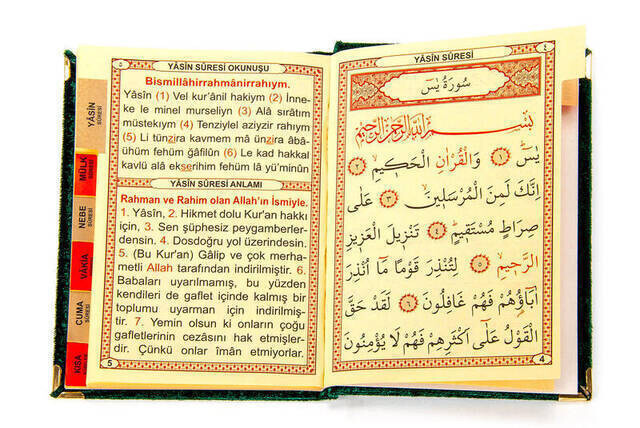 YÂSİN
SÛRESİ
MÜLK
SÛRESİ
NEBE
SÛRESİ
VÂKIA
CUMA
SÛRESİ
KISA
٥
YÂSİN SÛRESİ OKUNUŞU
Bismillâhirrahmânirrahıym.
Yâsîn (1) Vel kur'ânil hakiym (2) İnne-
ke le minel murseliyn (3) Alâ sırâtım
müstekıym (4) Tenziylel aziyzir rahıym
(5) Li tünzira kavmem mâ ünzira âbâ-
ühüm fehüm ğâfilûn (6) Le kad hakkal
kavlü alâ ekserihim fehüm lâ yü'minûn
YÂSİN SÛRESİ ANLAMI
Rahman ve Rahim olan Allah'ın İsmiyle.
1. Yâsîn, 2. Hikmet dolu Kur'an hakkı
için, 3. Sen şüphesiz peygamberler-
densin. 4. Dosdoğru yol üzerindesin.
5. (Bu Kur'an) Gâlip ve çok merha-
metli Allah tarafından indirilmiştir. 6.
Babaları uyarılmamış, bu yüzden
kendileri de gaflet içinde kalmış bir
toplumu uyarman için indirilmiş-
tir. 7. Yemin olsun ki onların çoğu
gafletlerinin cezasını hak etmişler-
dir. Çünkü onlar îmân etmiyorlar.
5
٤
YÂSİN SÛRESİ
سُورَةُ يٰسٓ
بِسْمِ اللّٰهِ الرَّحْمٰنِ الرَّحِيمِ
يٰسٓ ١ وَالْقُرْاٰنِ الْحَكِيمِ ٢
اِنَّكَ لَمِنَ الْمُرْسَلِينَ ٣ عَلٰى
صِرَاطٍ مُسْتَقِيمٍ ٤ تَنْزِيلَ الْعَزِيزِ
الرَّحِيمِ ٥ لِتُنْذِرَ قَوْمًا مَٓا اُنْذِرَ
اٰبَٓاؤُهُمْ فَهُمْ غَافِلُونَ ٦ لَقَدْ حَقَّ
الْقَوْلُ عَلٰٓى اَكْثَرِهِمْ فَهُمْ لَا يُؤْمِنُونَ
4